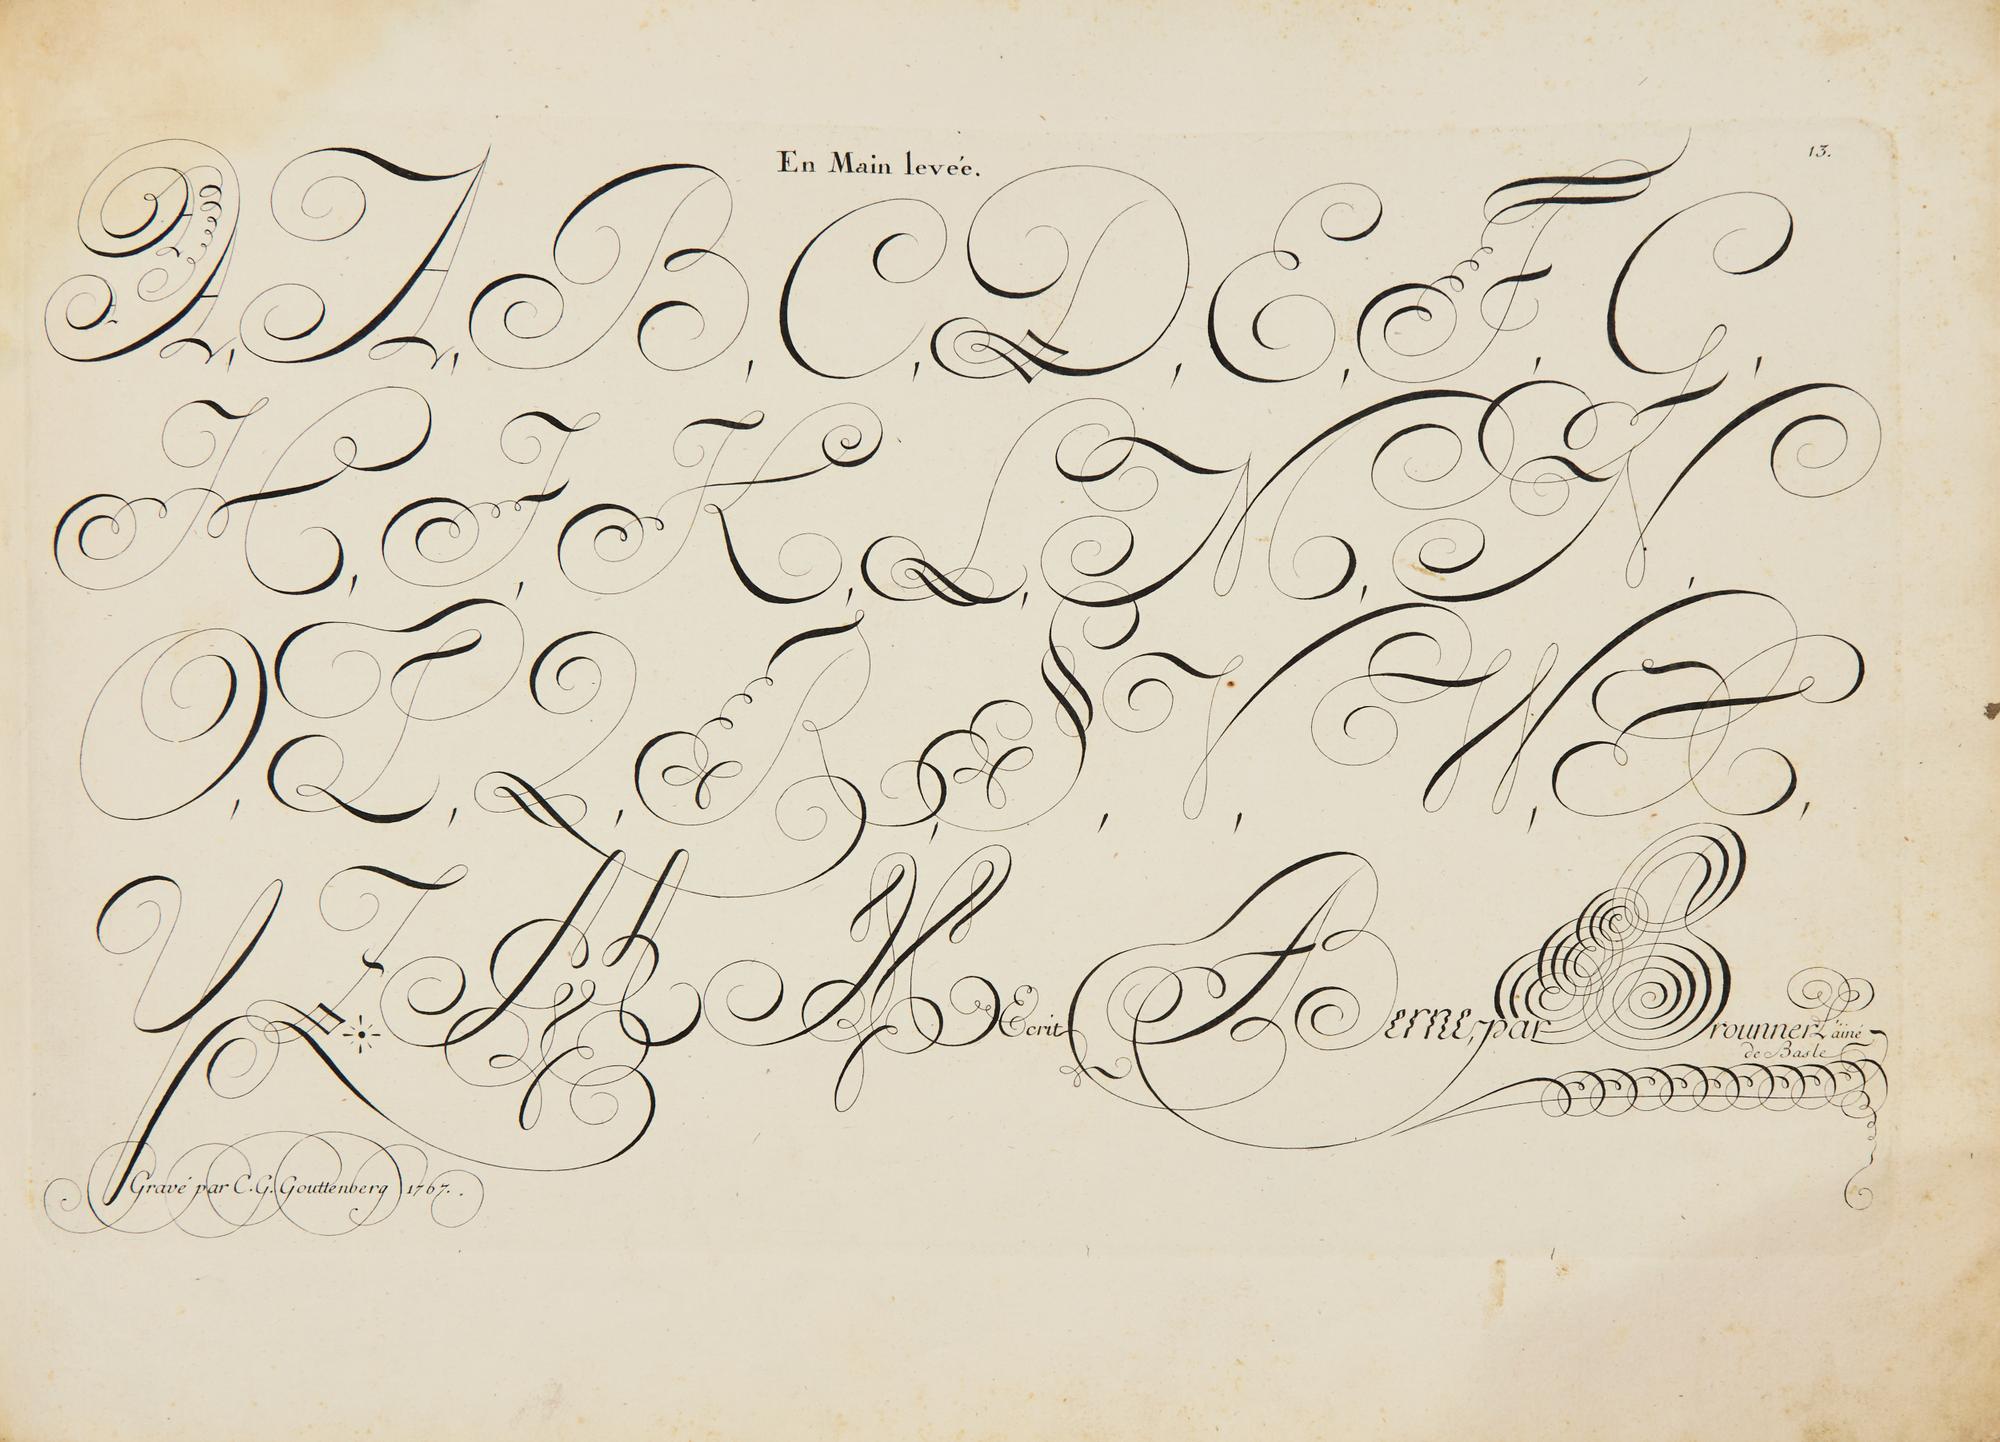 En Main levée.
13.
A, A, B, C, D, E, F, G,
H, I, K, L, M, N,
O, P, Q, R, S, V, W, X,
Y, Z
Ecrit A Berne, par Brounner L'ainé
de Basle
Gravé par C. G. Gouttenberg 1767.